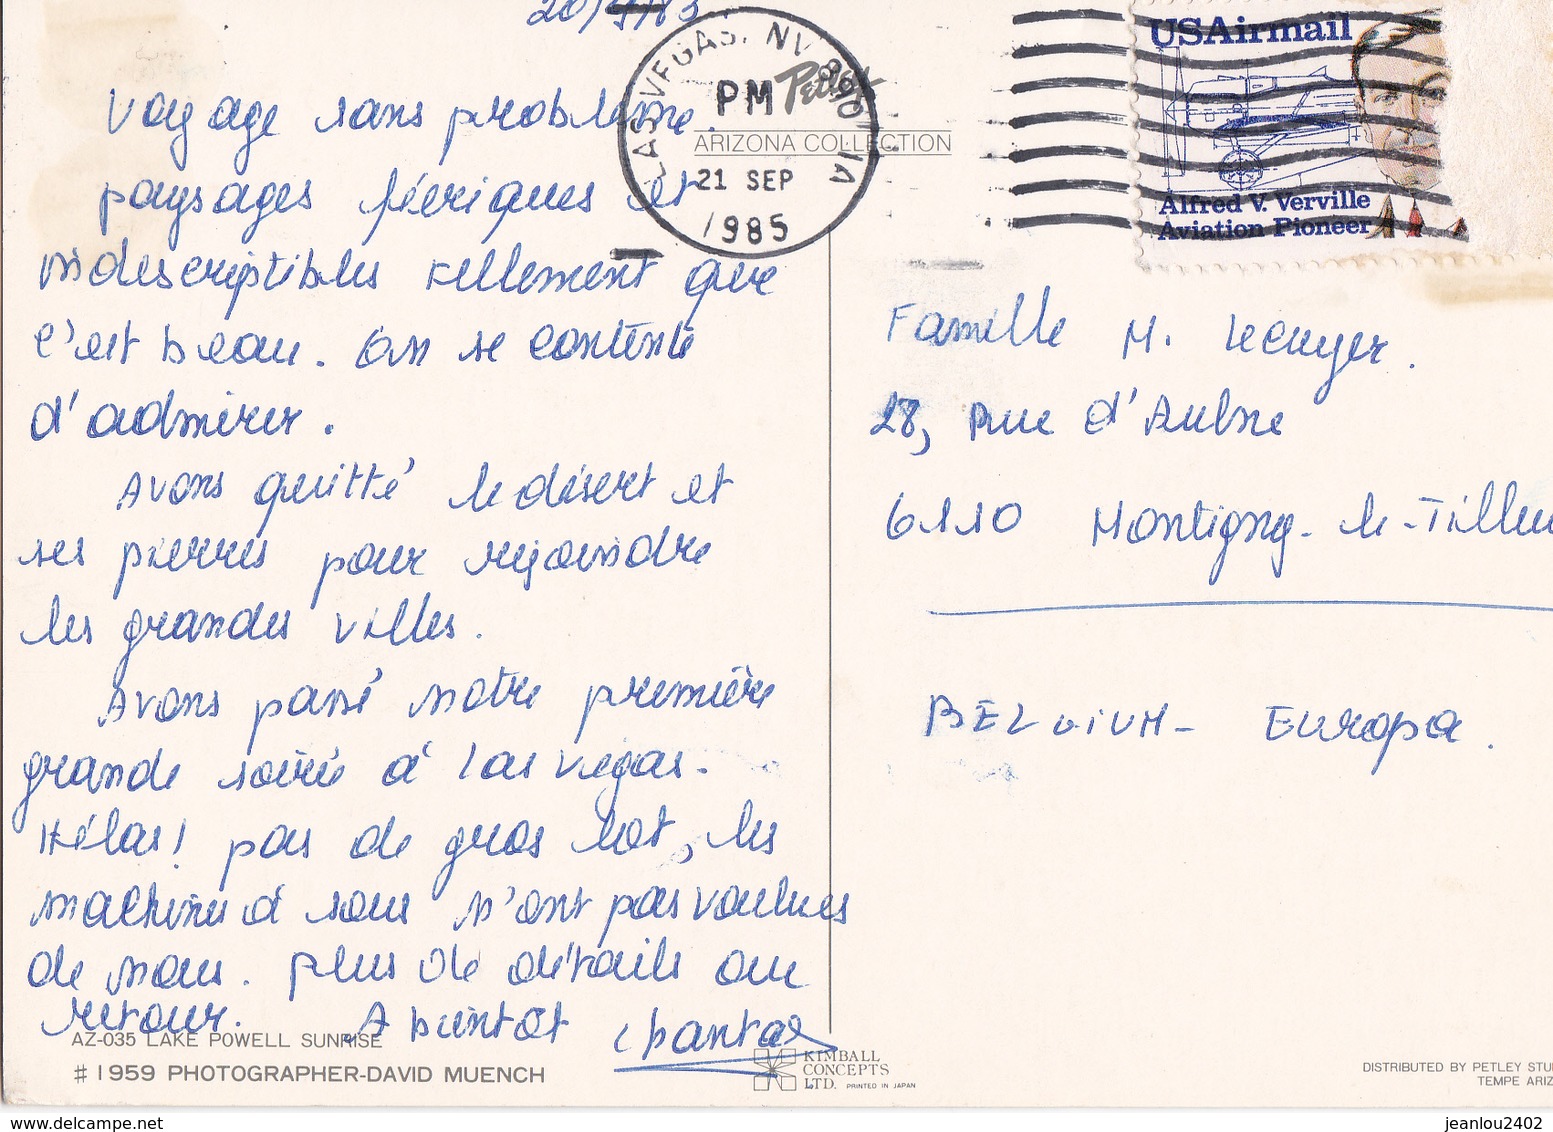 20/9/85
Voyage sans problème.
paysages féeriques et
indescriptibles tellement que
c'est beau. On se contente
d'admirer.
Avons quitté le désert et
ses pierres pour rejoindre
les grandes villes.
Avons passé notre première
grande soirée à Las Vegas.
Hélas! pas de gros lot, les
machines à sous n'ont pas voulues
de nous. plus de détails au
retour. A bientôt Chantal
AZ-035 LAKE POWELL SUNRISE
# 1959 PHOTOGRAPHER-DAVID MUENCH
LAS VEGAS, NV
PM
21 SEP
1985
Petley
ARIZONA COLLECTION
USAirmail
Alfred V. Verville
Aviation Pioneer
Famille M. Lecuyer.
28, Rue d'Aulne
6110 Montigny-le-Tilleu
BELGIUM - Europa.
KIMBALL
CONCEPTS
LTD. PRINTED IN JAPAN
DISTRIBUTED BY PETLEY STU
TEMPE ARIZ
jeanlou2402